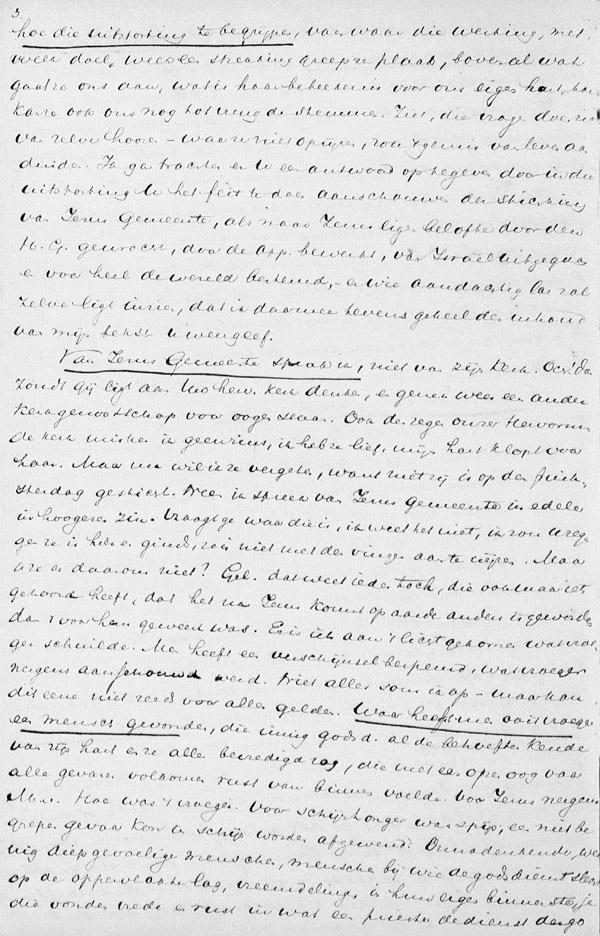 3.
hoe die uitstorting te begrijpen, van waar die werking, met
welk doel,
gaat ze ons aan, wat is haar beteekenis voor ons eigen hart, hoe
kan ze ook ons nog tot vreugde stemmen. Ziet, die vragen doen zich
van zelve hooren – waar ze niet oprijzen, zou 't gemis van leven aan
duiden. Ik ga trachten er U een antwoord op te geven door in die
uitstorting U het feit te doen aanschouwen der Stichting
van Jezus Gemeente, als naar Jezus eigen belofte door den
H. G. gewrocht, door de App. bewerkt, van Israël uitgegaan
en voor heel de wereld bestemd, – en wie aandachtig las zal
zelve ligt inzien, dat ik daarmee tevens geheel den inhoud
van mijn tekst U weergeef.
Van Jezus Gemeente sprak ik, niet van zijn Kerk. Och! dan
zoudt gij ligt aan Uw herv. kerk denken, en genen weer een ander
Kerkgenootschap voor oogen staan. Ook de zegen onzer Hervorm
de kerk misken ik geenszins, ik heb ze lief, mijn hart klopt voor
haar. Maar nu wil ik ze vergeten, want niet zij is op den Pink-
sterdag gesticht. Neen ik spreek van Jezus gemeente in edelen
in hoogeren zin. Vraagt ge waar die is, ik weet het niet, ik zou U zeg
gen ze is hier en ginds, ze is niet met den vinger aan te wijzen. Maar
is ze er daarom niet? Gel. dat weet ieder toch, die ook maar iets
gehoord heeft, dat het na Jezus komst op aarde anders is geworden
dan 't voor hem geweest was. Er is iets aan 't licht gekomen wat vroe-
ger schuilde. Men heeft een verschijnsel bespeurd, wat vroeger
nergens aanschouwd werd. Niet alles som ik op – maar kan
dit eene niet reeds voor alles gelden. Waar heeft men ooit vroeger
een mensch gevonden, die innig godsd. al de behoeften kende
van zijn hart en ze alle bevredigd zag, die met een open oog voor
alle gevaren volkomen rust van binnen voelde. Voor Jezus nergens
M. Hoe was 't vroeger. Voor schijnhonger was spijs, een niet be
grepen gevaar kon in schijn worden afgewend. Onnadenkende, wei
nig diepgevoelige menschen, menschen bij wie de godsdienst slechts
op de oppervlakte lag, vreemdelingen in hun eigen binnenste, ja
die vonden vrede en rust in wat een priester